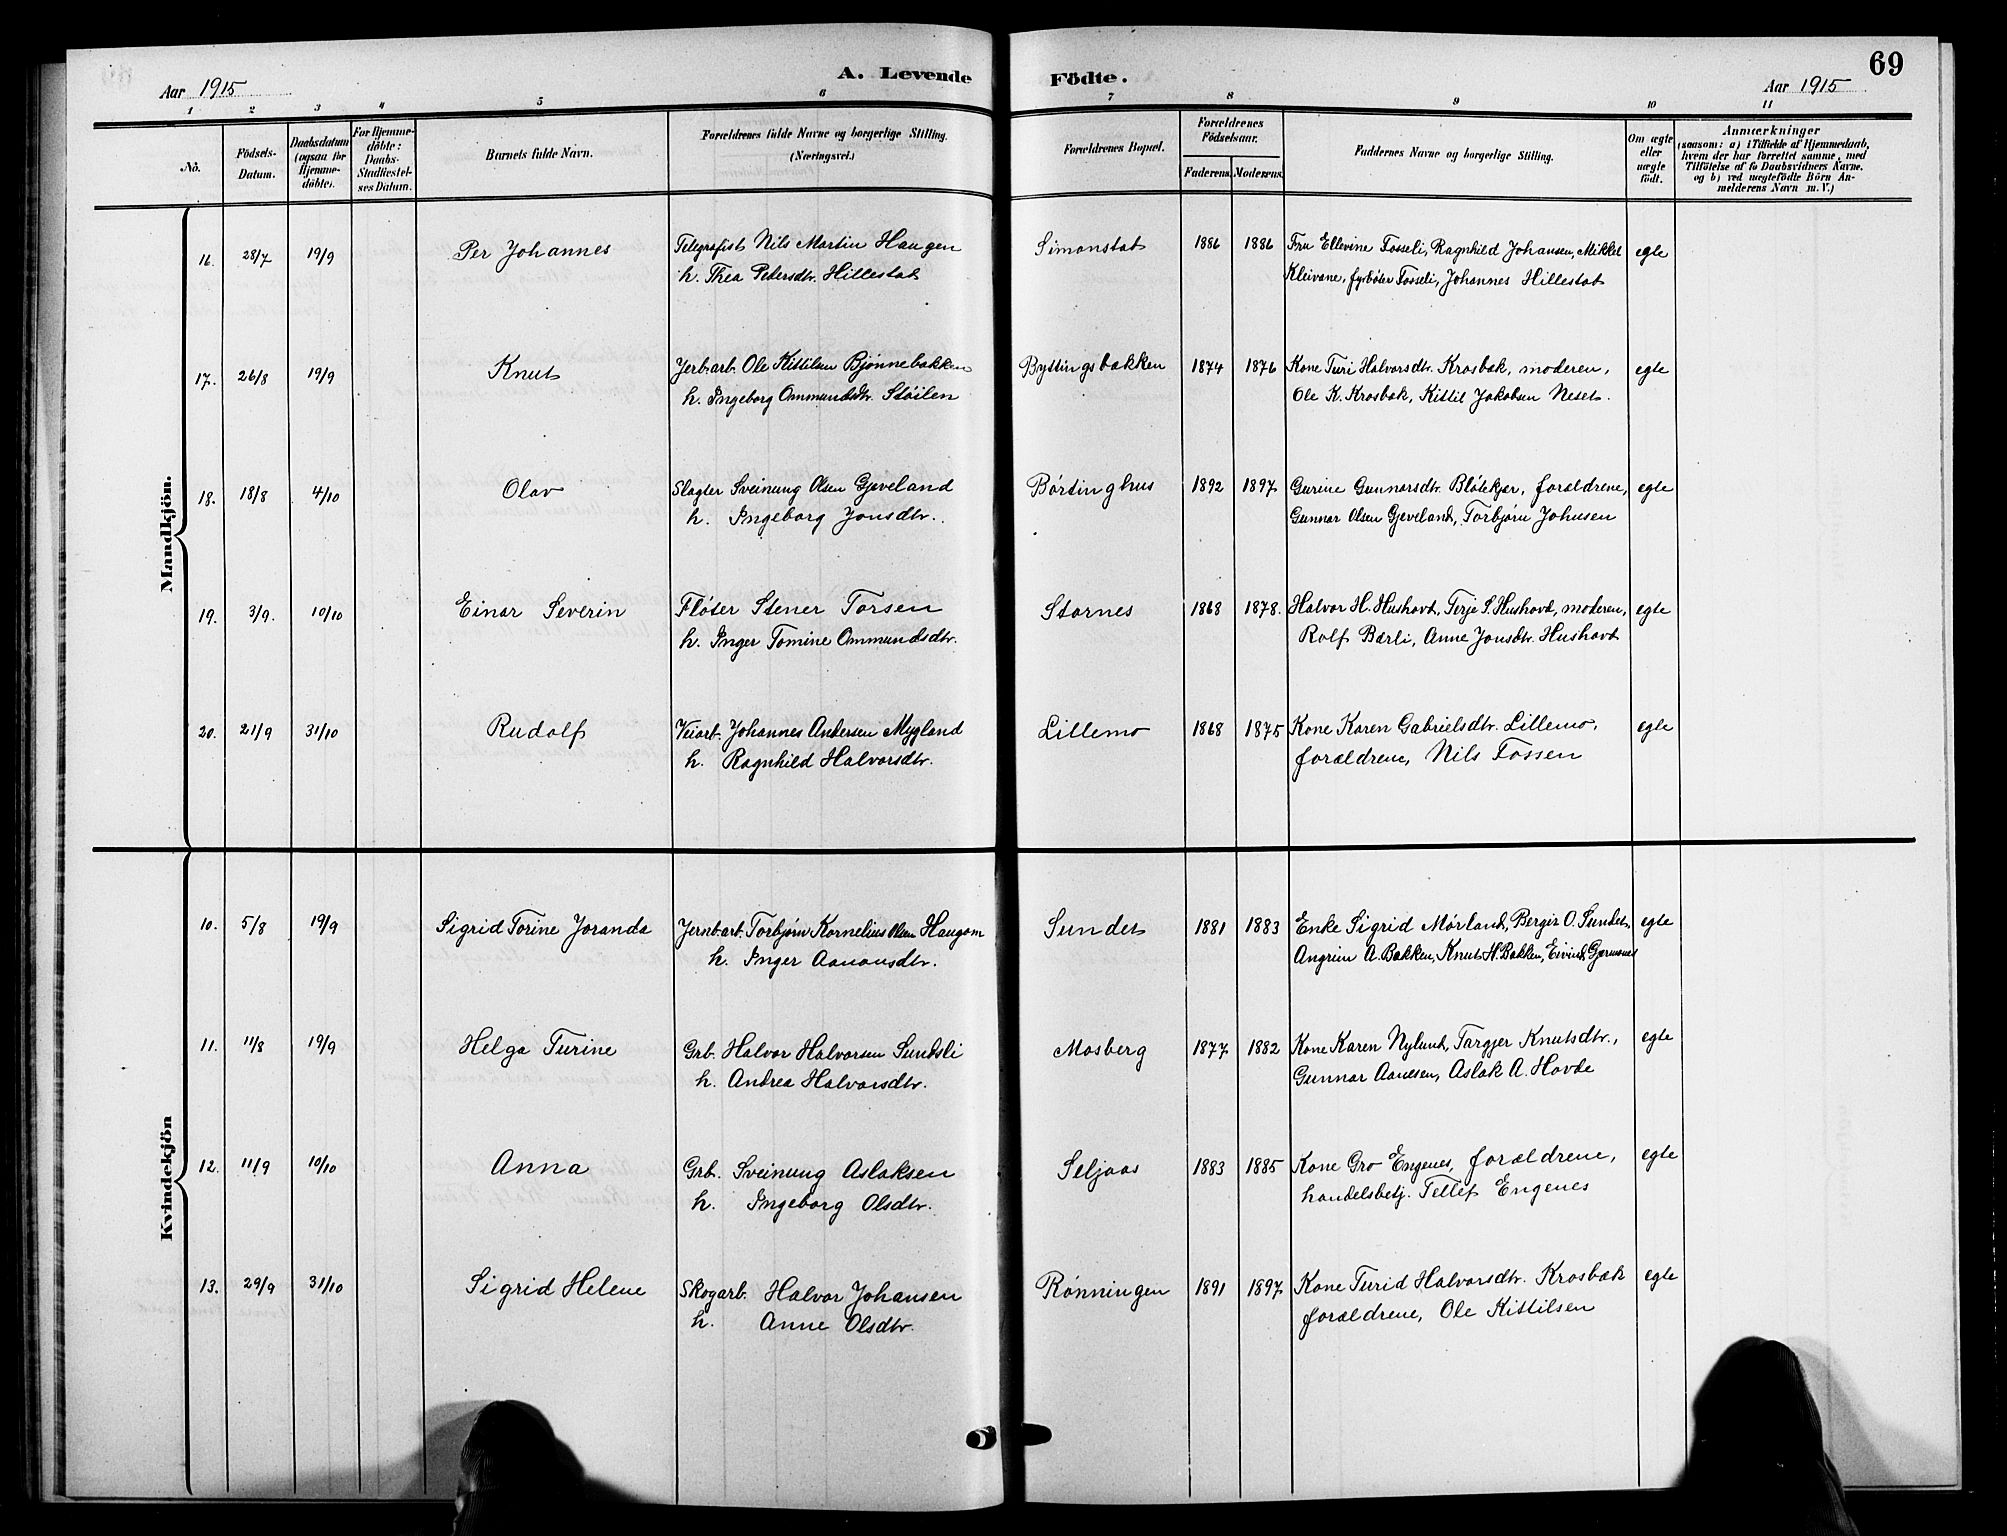 69
A. Levende Födte.
Aar 1915
Aar 1915
1 2 3 4 5 6 7 8 9 10 11
No.
Födsels-Datum.
Daabsdatum (ogsaa for Hjemme-döbte).
For Hjemme-döbte: Daabs-Stadfæstel-ses Datum.
Barnets fulde Navn.
Forældrenes fulde Navne og borgerlige Stilling. (Næringsvei.)
Forældrenes Bopæl.
Forældrenes Födselsaar.
Faderens. Moderens.
Faddernes Navne og borgerlige Stilling.
Om ægte eller uægte födt.
Anmærkninger
(saasom: a) i Tilfælde af Hjemmedaab, hvem der har forrettet samme, med Tilföielse af to Daabsvidners Navne, og b) ved uægtefödte Börn An-melderens Navn m. V.)
Mandkjön.
16. 28/7 19/9 Per Johannes Telegrafist Nils Martin Haugen Simonstat 1886 1886 Fru Ellevine Fosseli, Ragnhild Johansen, Mikkel egte
h. Thea Petersdtr. Hillestat Kleivane, fyrbøter Fosseli, Johannes Hillestat
17. 26/8 19/9 Knut Jerb.arb. Ole Kittilsen Bjønnebakken Byttingsbakken 1874 1876 Kone Turi Halvorsdtr. Krosbæk, moderen, egte
h. Ingeborg Ommundsdtr. Støilen Ole K. Krosbæk, Kittil Jakobsen Neset.
18. 18/8 4/10 Olav Slagter Sveinung Olsen Gjeveland Børtinghus 1892 1897 Gurine Gunnarsdtr. Bløtekjær, forældrene, egte
h. Ingeborg Jonsdtr. Gunnar Olsen Gjeveland, Torbjørn Johnsen
19. 3/9. 10/10 Einar Severin Fløter Stener Torsen Stornes 1868 1878. Halvor H. Hushovd, Terje S. Hushovd, moderen, egte
h. Inger Tomine Ommundsdtr. Rolf Bærli, Anne Jonsdtr. Hushovd
20. 21/9 31/10 Rudolf Veiarb. Johannes Andersen Mygland Lillemo 1868 1875 Kone Karen Gabrielsdtr. Lillemo, egte
h. Ragnhild Halvorsdtr. forældrene, Nils Fossen
Kvindekjön
10. 5/8 19/9 Sigrid Torine Joranda Jernb.arb. Torbjørn Kornelius Olsen Haugom Sundet 1881 1883 Enke Sigrid Mørland, Bergit O. Sundet, egte
h. Inger Aanonsdtr. Angrim A. Bakken, Knut H. Bakken, Eivind
11. 11/8 19/9 Helga Turine Grb. Halvor Halvorsen Sundsli Mosberg 1877 1882 Kone Karen Nylund, Targjer Knutsdtr., egte
h. Andrea Halvorsdtr. Gunnar Aanesen, Aslak A. Hovde
12. 11/9 10/10 Anna Grb. Sveinung Aslaksen Seljaas 1883 1885 Kone Gro Engenes, forældrene, egte
h. Ingeborg Olsdtr. handelsbetj. Tellef Engenes
13. 29/9 31/10 Sigrid Helene Skogarb. Halvor Johansen Rønningen 1891 1897 Kone Turid Halvorsdtr. Krosbæk egte
h. Anne Olsdtr. forældrene, Ole Kittilsen